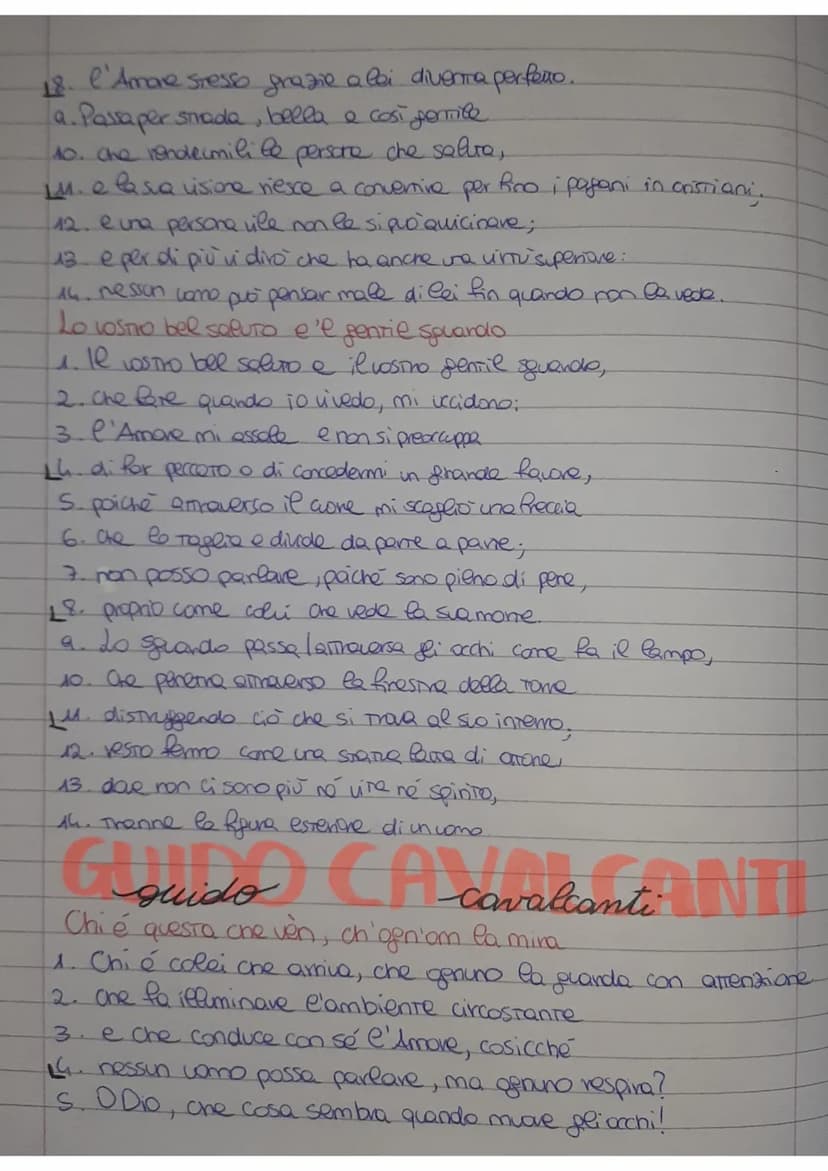 8. l'Amore stesso grazie a lei diventa perfetto.
9. Passa per strada, bella e così gentile
10. che rende umili le persone che saluta,
11. e la sua visione riesce a convertire per fino i pagani in cristiani.
12. e una persona vile non le si può avvicinare;
13. e per di più vi dirò che ha anche una virtù superiore:
14. nessun uomo può pensar male di lei fin quando non la vede.
Lo vostro bel saluto e 'l gentil sguardo
1. Il vostro bel saluto e il vostro gentil sguardo,
2. che fate quando io vi vedo, mi uccidono;
3. l'Amore mi assale e non si preoccupa
4. di far peccato o di concedermi un grande favore,
5. poiché attraverso il cuore mi scagliò una freccia
6. che lo taglia e divide da parte a parte;
7. non posso parlare, poiché sono pieno di pene,
8. proprio come colui che vede la sua morte.
9. Lo sguardo passa attraverso gli occhi come fa il lampo,
10. che penetra attraverso la finestra della torre
11. distruggendo ciò che si trova al suo interno;
12. resto fermo come una statua fatta di ottone,
13. dove non ci sono più né vita né spirito,
14. tranne la figura esteriore di un uomo.
GUIDO CAVALCANTI
guido cavalcanti
Chi é questa che vèn, ch'ogn'om la mira
1. Chi é colei che arriva, che ognuno la guarda con attenzione
2. che fa illuminare l'ambiente circostante
3. e che conduce con sé l'Amore, cosicché
4. nessun uomo possa parlare, ma ognuno respira?
5. O Dio, che cosa sembra quando muove gli occhi!